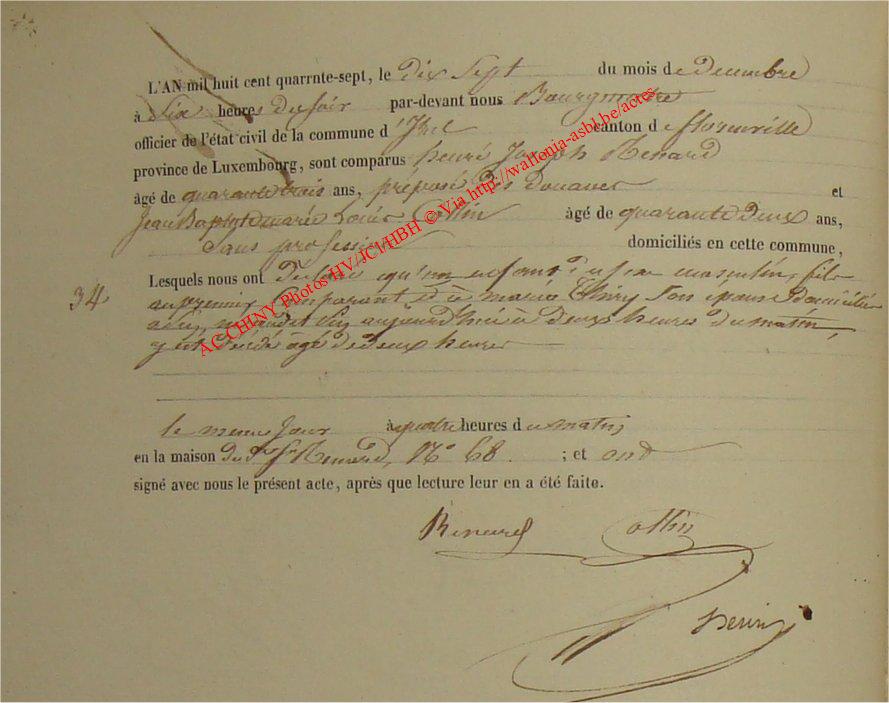 L'AN mil huit cent quarrnte-sept, le dix sept du mois de decembre
à six heures du soir par-devant nous Bourgmestre
officier de l'état civil de la commune d'Izel canton de florenville
province de Luxembourg, sont comparus henri Joseph Renard
âgé de quarante trois ans, préposé des Douanes et
Jean Baptiste marie Louis Collin âgé de quarante deux ans,
Sans profession domiciliés en cette commune,
Lesquels nous ont déclaré qu'un enfant du sexe masculin, fils
du premier Comparant et de marie Thiry Son épouse Domiciliée
né aujourd'hui à Deux heures du matin,
y est décédé âgé de deux heures
34
le meme Jour à quatre heures du matin,
en la maison du dt Sr Renard, N° 68 ; et ont
signé avec nous le présent acte, après que lecture leur en a été faite.
Renard Collin
ACCHINY Photos HV/JCI/HBH © Via http://wallonia-asbl.be/actes.